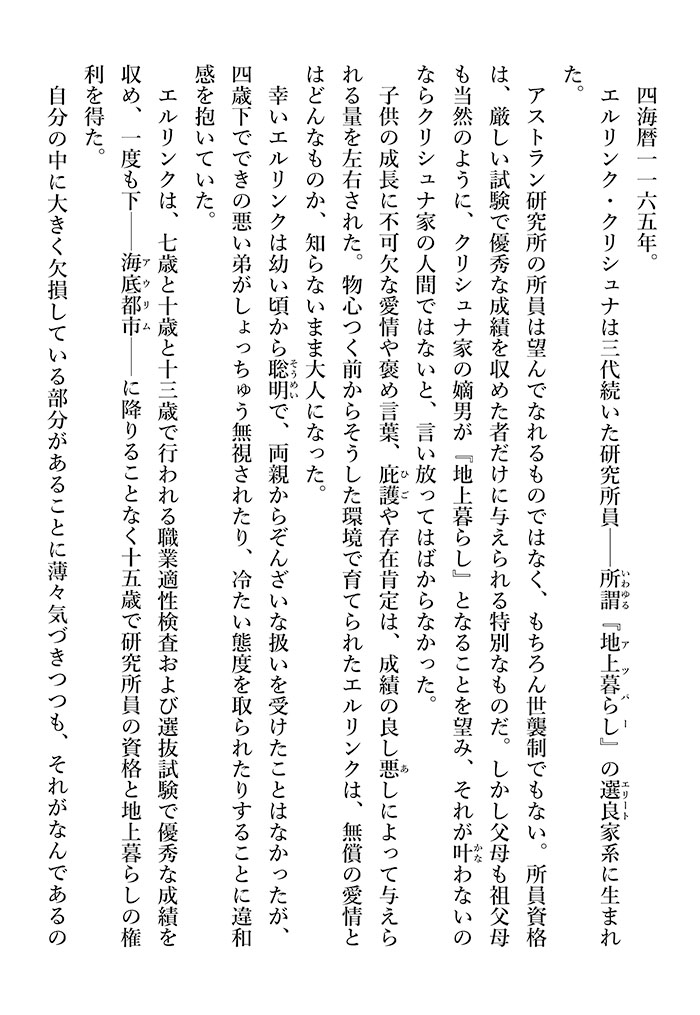 四海暦一一六五年。
エルリンク・クリシュナは三代続いた研究所員――所謂『地上暮らし』の選良家系に生まれ
いわゆる アッパー エリート
た。
アストラン研究所の所員は望んでなれるものではなく、もちろん世襲制でもない。所員資格
は、厳しい試験で優秀な成績を収めた者だけに与えられる特別なものだ。しかし父母も祖父母
も当然のように、クリシュナ家の嫡男が『地上暮らし』となることを望み、それが叶わないの
かな
ならクリシュナ家の人間ではないと、言い放ってはばからなかった。
子供の成長に不可欠な愛情や褒め言葉、庇護や存在肯定は、成績の良し悪しによって与えら
ひご あ
れる量を左右された。物心つく前からそうした環境で育てられたエルリンクは、無償の愛情と
はどんなものか、知らないまま大人になった。
幸いエルリンクは幼い頃から聡明で、両親からぞんざいな扱いを受けたことはなかったが、
そうめい
四歳下でできの悪い弟がしょっちゅう無視されたり、冷たい態度を取られたりすることに違和
感を抱いていた。
エルリンクは、七歳と十歳と十三歳で行われる職業適性検査および選抜試験で優秀な成績を
収め、一度も下――海底都市――に降りることなく十五歳で研究所員の資格と地上暮らしの権
アウリム
利を得た。
自分の中に大きく欠損している部分があることに薄々気づきつつも、それがなんであるの